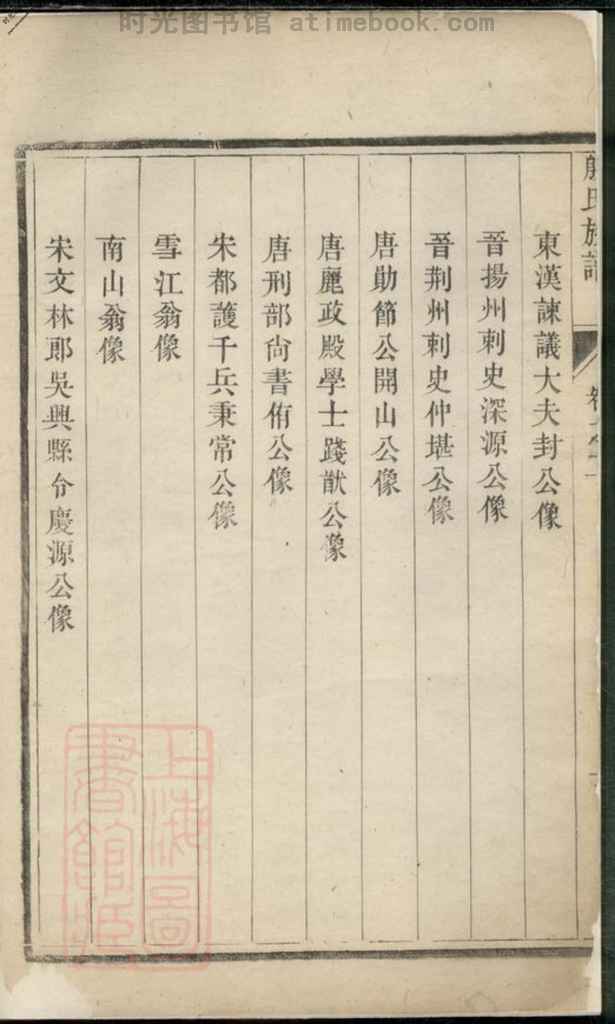 时光图书馆 atimebook.com
殷氏族譜
卷
東漢諫議大夫封公像
晉揚州刺史深源公像
晉荆州刺史仲堪公像
唐勛節公開山公像
唐麗政殿學士踐猷公像
唐刑部尙書侑公像
宋都護千兵秉常公像
雪江翁像
南山翁像
宋文林郎吳興縣令慶源公像
上海圖
書館藏